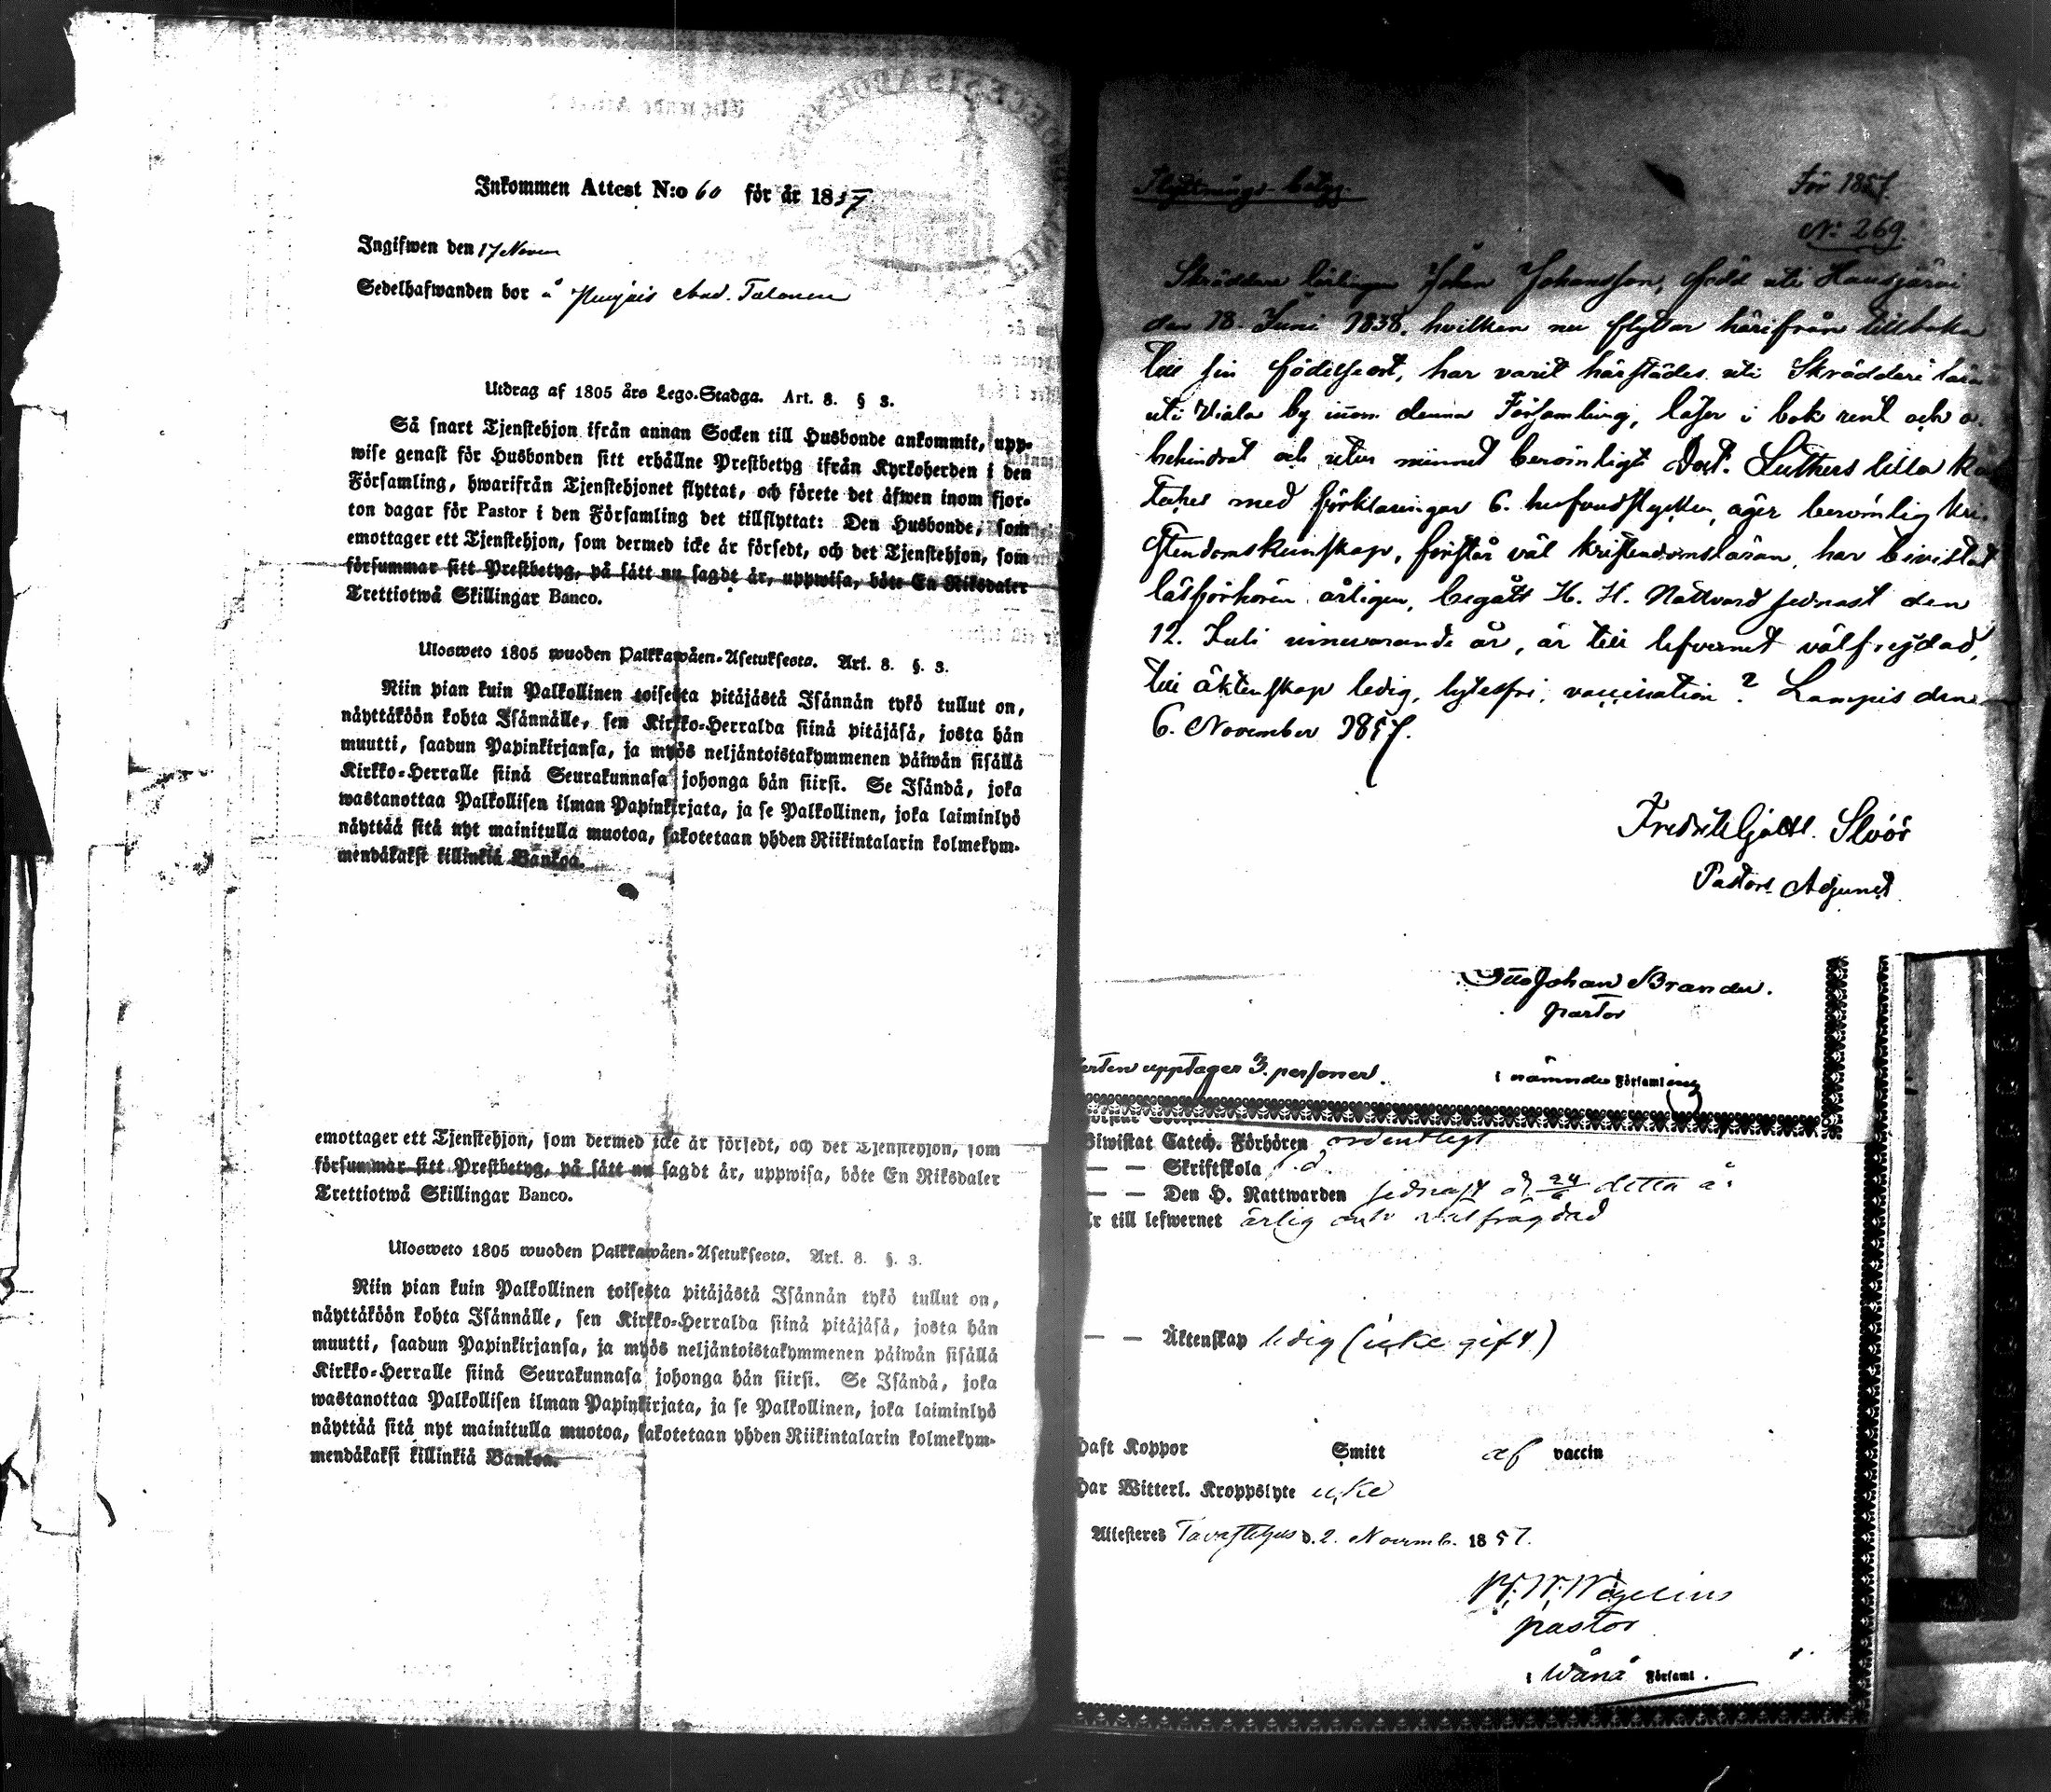 Inkommen Attest N:o 60 för år 1857
Ingifwen den 17 Novem
Sedelhafwanden bor å Talonen
Utdrag af 1805 års Lego-Stadga. Art. 8. § 3.
Så snart Tjenstehjon ifrån annan Socken till Husbonde ankommit, upp-
wise genast för Husbonden sitt erhållne Prestbetyg ifrån Kyrkoherden i den
Församling, hwarifrån Tjenstehjonet flyttat, och förete det äfwen inom fjor-
ton dagar för Pastor i den Församling det tillflyttat: Den Husbonde, som
emottager ett Tjenstehjon, som dermed icke är försedt, och det Tjenstehjon, som
försummar sitt Prestbetyg, på sätt nu sagdt är, uppwisa, böte En Riksdaler
Trettiotwå Skillingar Banco.
Ulosweto 1805 wuoden Palkkawäen-Asetuksesta. Art. 8. §. 3.
Niin pian kuin Palkollinen toisesta pitäjästä Isännän tykö tullut on,
näyttäköön kohta Isännälle, sen Kirkko-Herralda siinä pitäjäsä, josta hän
muutti, saadun Papinkirjansa, ja myös neljäntoistakymmenen päiwän sisällä
Kirkko-Herralle siinä Seurakunnasa johonga hän siirsi. Se Isändä, joka
wastanottaa Palkollisen ilman Papinkirjata, ja se Palkollinen, joka laiminlyö
näyttää sitä nyt mainitulla muotoa, sakotetaan yhden Riikintalarin kolmekym-
mendäkaksi killinkiä Bankoa.
emottager ett Tjenstehjon, som dermed icke är försedt, och det Tjenstehjon, som
försummar sitt Prestbetyg, på sätt nu sagdt är, uppwisa, böte En Riksdaler
Trettiotwå Skillingar Banco.
Ulosweto 1805 wuoden Palkkawäen-Asetuksesta. Art. 8. §. 3.
Niin pian kuin Palkollinen toisesta pitäjästä Isännän tykö tullut on,
näyttäköön kohta Isännälle, sen Kirkko-Herralda siinä pitäjäsä, josta hän
muutti, saadun Papinkirjansa, ja myös neljäntoistakymmenen päiwän sisällä
Kirkko-Herralle siinä Seurakunnasa johonga hän siirsi. Se Isändä, joka
wastanottaa Palkollisen ilman Papinkirjata, ja se Palkollinen, joka laiminlyö
näyttää sitä nyt mainitulla muotoa, sakotetaan yhden Riikintalarin kolmekym-
mendäkaksi killinkiä Bankoa.
Flyttnings-betyg.
För 1857.
N: 269.
Skräddare lärlingen Johan Johansson, född uti Hausjärvi
den 18. Juni 1838, hvilken nu flyttar härifrån tillbaka
till sin födelseort, har varit härstädes uti Skrädderi lära
uti Viala by inom denna Församling, läser i bok rent och o-
behindrat och utur minnet berömligt Doct. Luthers lilla
med förklaringar 6. hufvudstycken, äger berömlig kri-
stendomskunskap, förstår väl kristendomsläran, har bivistat
läsförhören årligen, begått H. H. Nattvard sednast den
12. Juli innevarande år, är till lefvernet välfrejdad,
till äktenskap ledig, lytesfri, vaccination? Lampis den
6. November 1857.
Slöör
Pastors Adjunct
Otto Johan Brander.
pastor
upptager 3. personer.
i nämnde Församling
Biwistat Catech. Förhören ordentligt
— — Skriftskola
— — Den H. Nattwarden sednast d 24/ detta år
Är till lefwernet ärlig och välfrägdad
— — Äktenskap ledig (icke gift)
haft Koppor Smitt af vaccin
Har Witterl. Kroppslyte icke
Attesteres Tavastehus d. 2. Novemb. 1857.
Wegelius
pastor
i Wånå Församl.